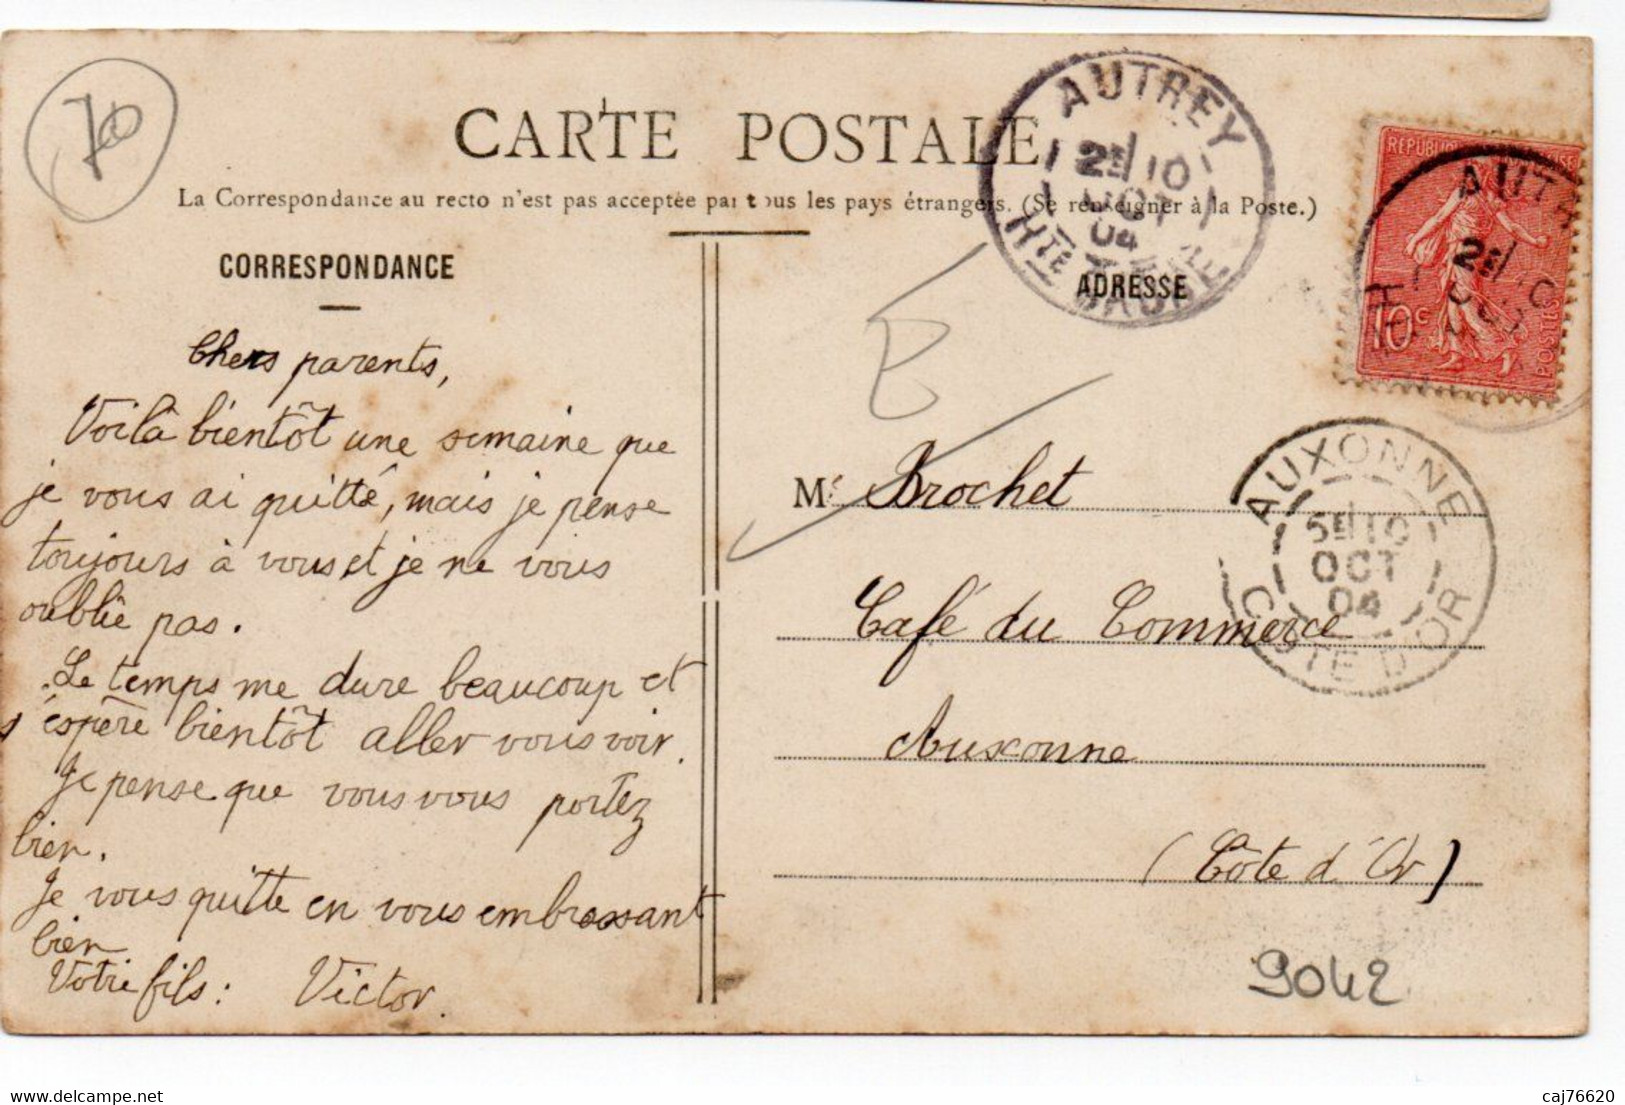 70
CARTE POSTALE
La Correspondance au recto n'est pas acceptée par tous les pays étrangers. (Se renseigner à la Poste.)
CORRESPONDANCE
Chers parents,
Voilà bientôt une semaine que
je vous ai quitté, mais je pense
toujours à vous et je ne vous
oublie pas.
Le temps me dure beaucoup et
j'espère bientôt aller vous voir.
Je pense que vous vous portez
bien.
Je vous quitte en vous embrassant
bien
Votre fils : Victor.
AUTREY
2E/10
OCT
04
HTE SAONE
ADRESSE
REPUBLIQUE FRANÇAISE
10c
POSTES
AUTR
2E/
AUXONNE
5E/10
OCT
04
COTE D'OR
M. Brochet
Café du Commerce
Auxonne
(Côte d'Or)
9042
delcampe.net
caj76620